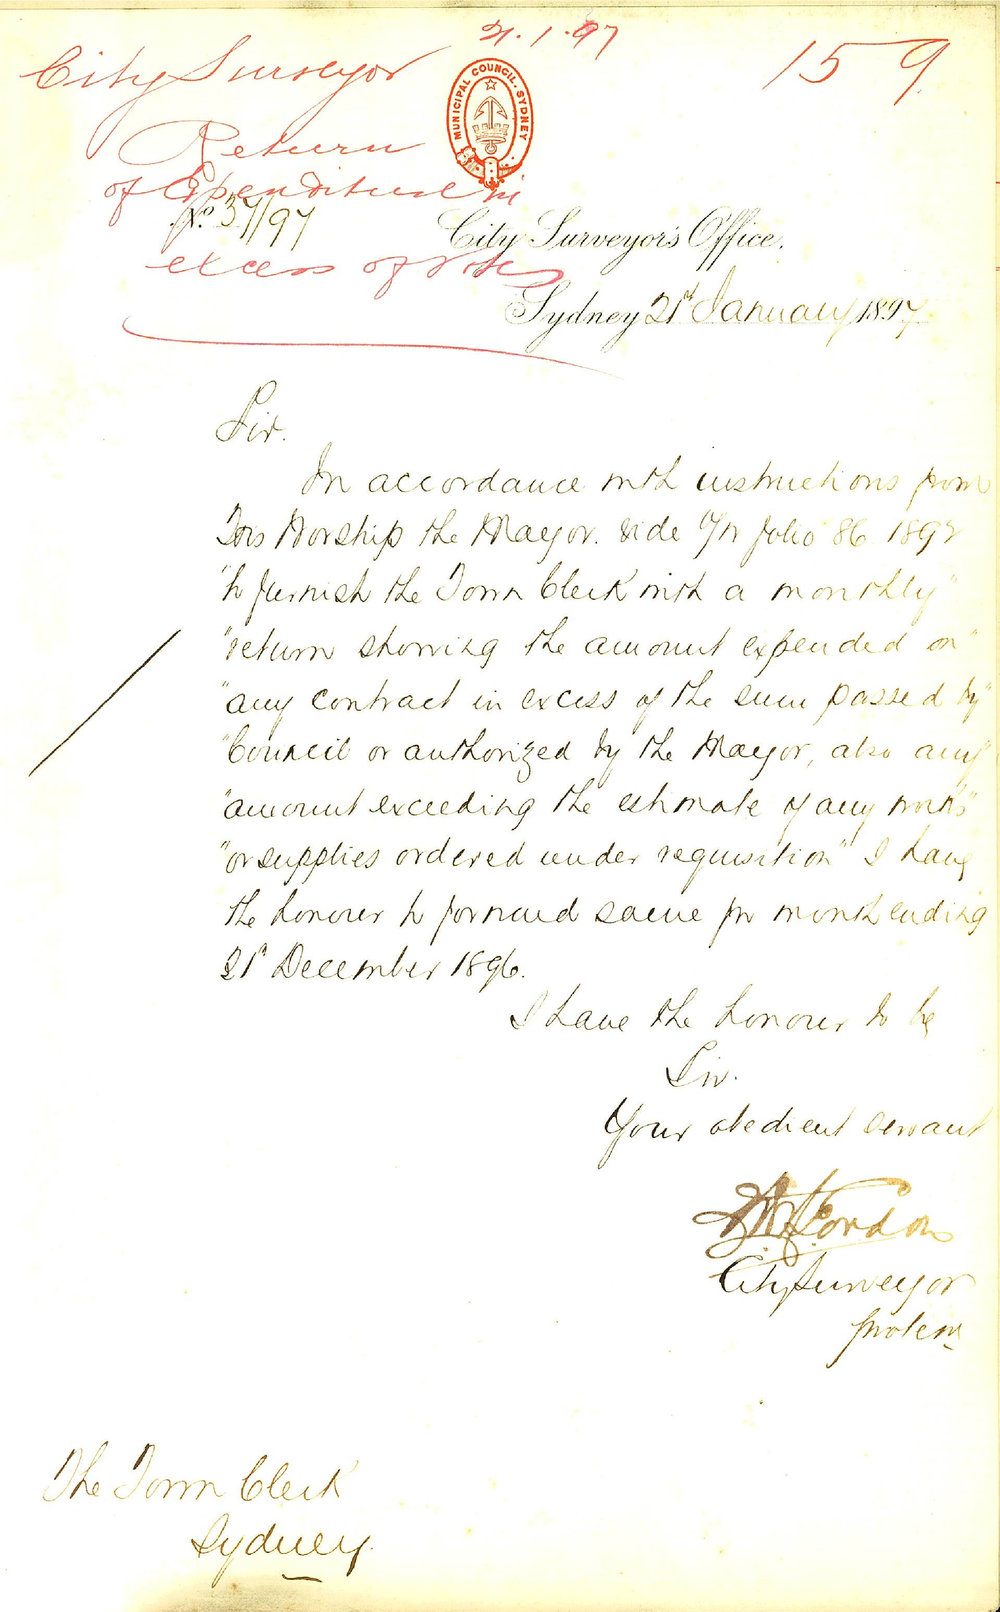 21.1.97
159.
City Surveyor
MUNICIPAL COUNCIL. SYDNEY
Return
of Expenditure in
No. 37/97
excess of votes
City Surveyor's Office,
Sydney 21st January 1897
Sir.
In accordance with instructions from
His Worship the Mayor. vide folio 86 1892
"to furnish the Town Clerk with a monthly"
"return showing the amount expended on"
"any contract in excess of the sum passed by"
"Council or authorized by the Mayor, also any"
"amount exceeding the estimate of any works"
"or supplies ordered under requisition" I have
the honour to forward same for month ending
31st December 1896.
I have the honour to be
Sir.
Your obedient servant
Gordon
City Surveyor
protem
The Town Clerk
Sydney.